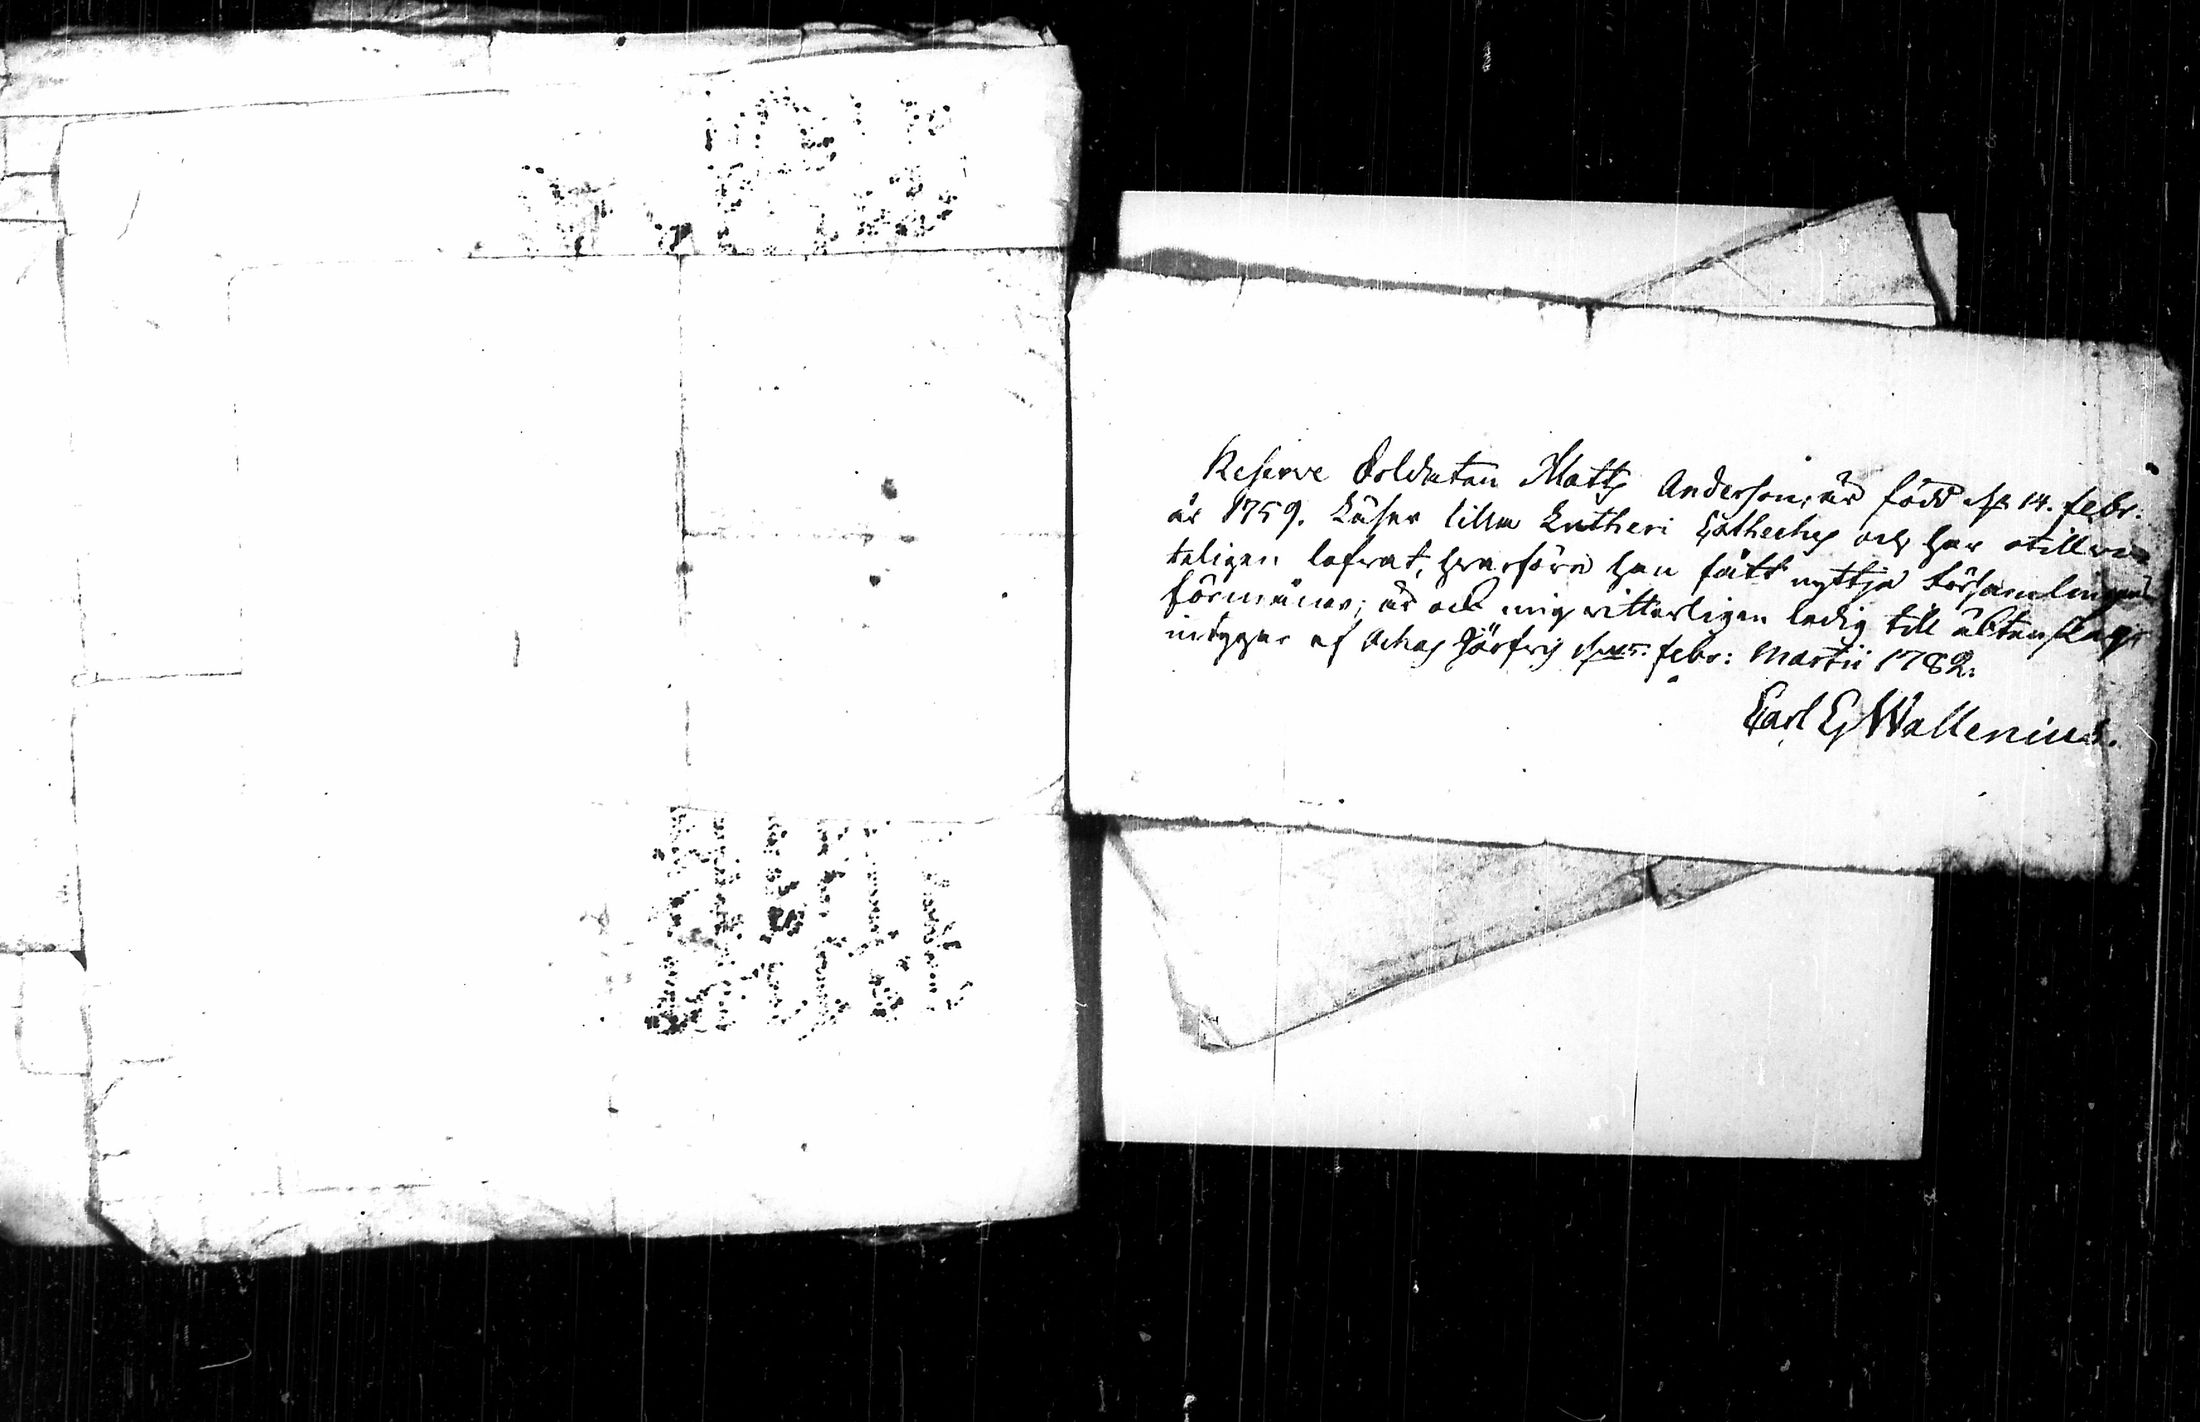 Reserve Soldaten Matts Anderson, är född d. 14. febr.
år 1759. Läser lilla Lutheri Catheches och har otillvi-
teligen lefwat, hwarföre han fått nyttja Församlingens
förmåner; är ock mig witterligen ledig till äktenskap
intygar af Ockas Järfwis febr: Martii 1782.
Carl G Wallenius.